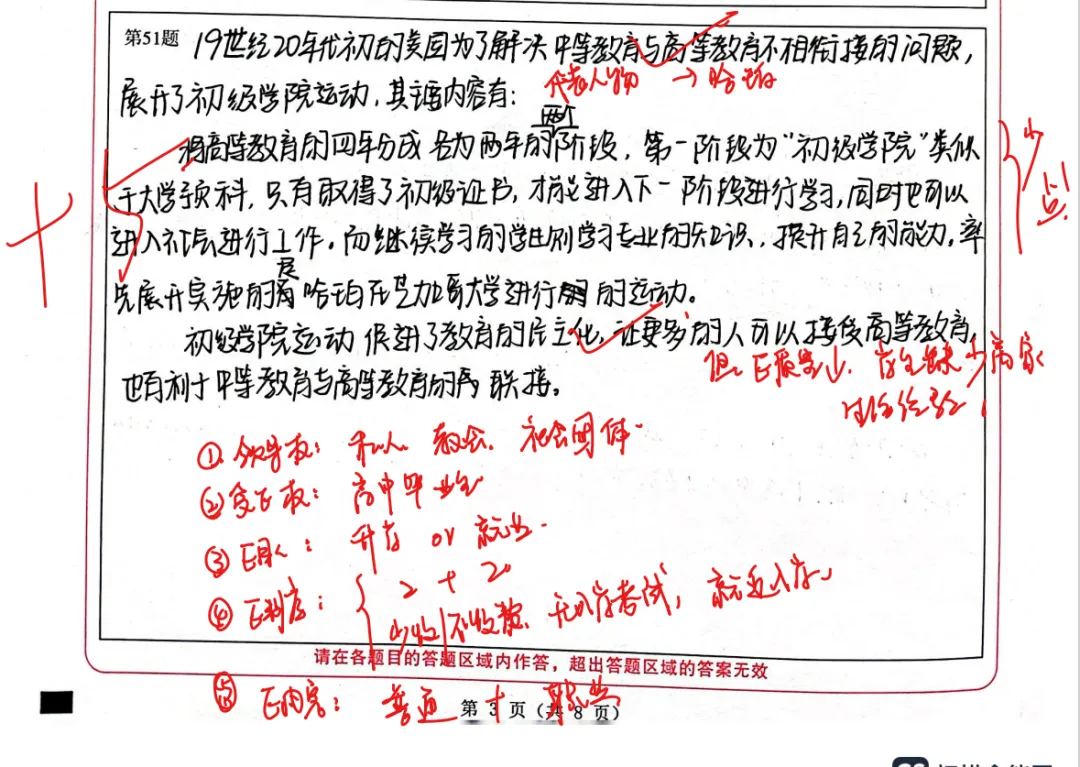 第51题 19世纪20年代初的美国为了解决中等教育与高等教育不相衔接的问题,
代表人物 → 哈珀
展开了初级学院运动,其主要内容有:
两个
将高等教育的四年分成各为两年的阶段,第一阶段为"初级学院"类似
于大学预科,只有取得了初级证书,才能进入下一阶段进行学习,同时也可以
进入社会进行工作。而继续学习的学生则学习专业的知识,提升自己的能力。率
是
先展开实施的 哈珀在芝加哥大学进行 的运动。
少点!
初级学院运动促进了教育的民主化,让更多的人可以接受高等教育,
也有利于中等教育与高等教育的 联接。
但 学生缺少离家
生活经验!
①领导权:私人 教会 社会团体
②受E权:高中毕业生
③E目的:升学 or 就业
④E制度:{ 2 + 2
少收/不收费、无入学考试,就近入学
请在各题目的答题区域内作答,超出答题区域的答案无效
⑤E内容:普通 + 职业
第 3 页(共 8 页)